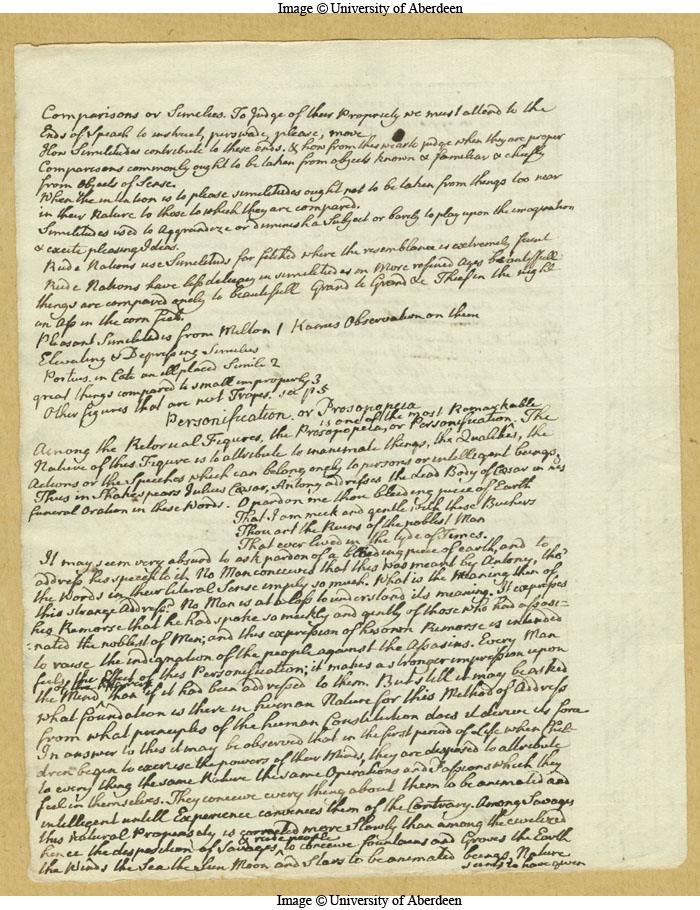 Image © University of Aberdeen
Comparisons or Similies. To Judge of their Propriety we must attend to the
Ends of Speach to instruct, perswade, please, move
How Similitudes contribute to these ends. & how from this we are to judge when they are proper
Comparisons commonly ought to be taken from objects known & familiar & chiefly
from Objects of Sense.
When the intention is to please similitudes ought not to be taken from things too near
in their Nature to those to which they are compared.
Similitudes used to Aggrandize or diminish a Subject or barely to play upon the imagination
& excite pleasing Ideas.
Rude Nations use Similitudes far fetched where the resemblance is extremely faint
Rude Nations have less delicacy in similitudes in More refined Ages beautyfull
things are compared onely to beautifull Grand to Grand &c Thief in the night
an Ass in the corn field.
Pleasant Similitudes from Milton 1 Kaims Observation on them
Elevating & Depressing Similies
Portius in Cato an ill placed Simile 2
great things compared to small improperly 3
Other figures that are not Tropes. see p 5
Personification or Prosopopeia
Among the Retorical Figures, the Prosopopeia, or Personification is one of the most Remarkable. The
Nature of this Figure is to attribute to inanimate things, the Qualities, the
Actions or the Speeches which can belong onely to persons or intelligent beings.
Thus in Shakespears Julius Cæsar, Antony addresses the Dead Body of Cæsar in his
funeral Oration in these words. O pardon me thou bleeding piece of Earth
That I am meek and gentle with these Buchers
Thou art the Ruins of the noblest Man
That ever lived in the tyde of Times.
It may seem very absurd to ask pardon of a bleeding piece of earth, and to
address his speech to it. No Man conceives that this was meant by Antony, tho'
the words in their literal Sense imply so much. What is the Meaning then of
this strange Address? No Man is at a loss to understand its meaning. It expresses
his Remorse that he had spoke so meekly and gently of those who had assasi-
nated the noblest of Men; and this expression of his own Remorse is intended
to raise the indignation of the people against the Assasins. Every Man
feels the Effect of this Personification; it makes a stronger impression upon
the Mind than if it had been addressed to them. But still it may be asked
what foundation is there in human Nature for this Method of Address
from what principles of the human Constitution does it derive its force
In answer to this it may be observed that in the first period of Life when Chil-
dren begin to exercise the powers of their Minds, they are disposed to attribute
to every thing the same Nature the same Operations and Passions which they
feel in themselves. They conceive every thing about them to be animated and
intelligent untill Experience convinces them of the Contrary. Among Savages
this Natural Propensity is corrected more Slowly than among the civilized
hence the disposition of Savages & rude people to conceive fountains and Groves the Earth
the Winds the Sea the Sun Moon and Stars to be animated beings. Nature
seems to have given
Image © University of Aberdeen